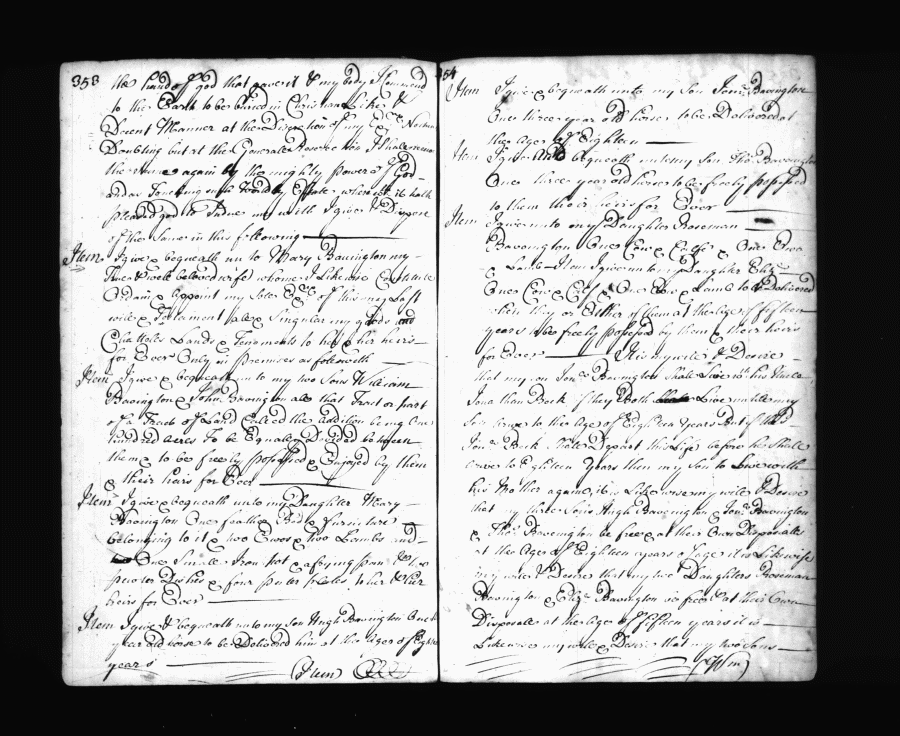 353
the hand of god that gave it & my body I Commend
to the Earth to be buried in Christian Like &
Decent Manner at the Discretion of my Exrs Nothing
Doubting but at the Generale Resurection I shall receive
the same again by the mighty power of God
and as Touching such Worldly Estate wherewith it hath
pleased god to Indue me with I give & Dispose
of the Same in this following
Item I give & bequeath un to Mary Bavington my
Dear & well beloved wife whome I Likewise Constitute
Ordain & Appoint my Sole Exrs of this my Last
will & Testament all & Singular my goods and
Chattells Lands & Tenements to her & her heirs
for Ever Only in premises as followeth
Item I give & bequeath un to my two Sons William
Bavington & John Bavington all that Tract or part
of a Tract of Land Called the Addition being One
hundred acres To be Equaley Divided between
them & to be freely possessed & Enjoyed by them
& their heirs for Ever
Item I give & bequeath unto my Daughter Mary
Bavington One feather Bed & furniture
belonging to it & two Ewes & two Lambs and
One Small Iron pot & a frying pan & two
pewter Dishes & four puter plates to her & her
heirs for Ever
Item I give & bequeath unto my Son Hugh Bavington One
year old horse to be Delivered him at the Age of Eighteen
years
(Item)
354
Item I give & bequeath unto my Son Jona Bavington
One three year old horse to be Delivered at
the Age of Eighteen
Item I give And bequeath unto my Son Thos Bavington
One three year old horse to be freely possessed
to them their heirs for Ever
Item I give unto my Daughter Roseman
Bavongton One Cow & Calf & One Ewe
& Lamb Item I give unto my Daughter Eliz
One Cow & Calf & One Ewe & Lamb to be Delivered
when they or Either of them at the Age of fifteen
years to be freely possessed by them & their heirs
for Ever It is my will & Desire
that my son Jona Bavington Shall Live with his Uncle
Jona than Beck if they Both Live untill my
Son come to the Age of Eighteen years but if the
Jona Beck Shall Depart this Life before he Shall
come to Eighteen years then my Son to Live with
his Mother again it is Likewise my will & Desire
that my three Sons Hugh Bavington & Jona Bavington
& Thos Bavington be free & at their Own Disposall
at the Age of Eighteen years of age it is Likewise
my will & Desire that my two Daughters Roseman
Bavington & Eliz Bavington be free & at their Own
Disposall at the Age of fifteen years it is
Likewise my will & Desire that my two Sons
(Wm)